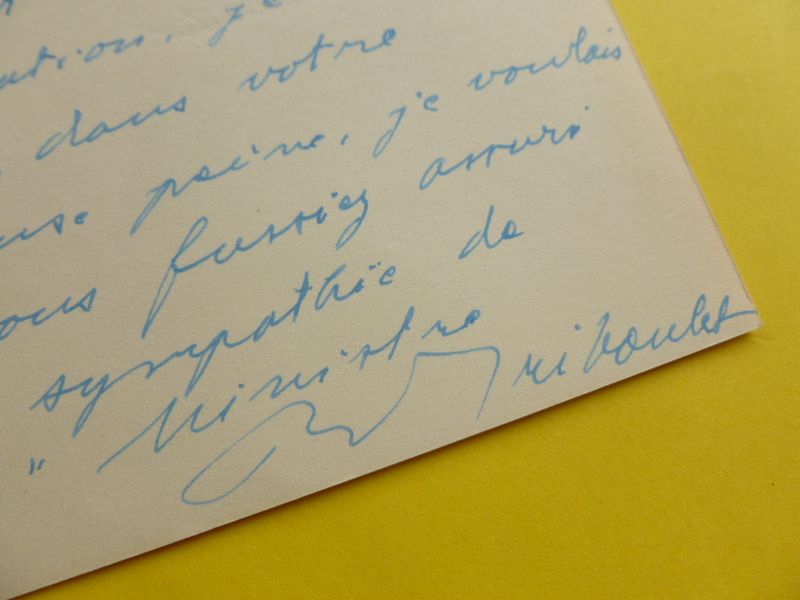 ation, je
dans votre
use peine, je voulais
ous fussiez assuré
sympathie de
" Ministre
Triboulet